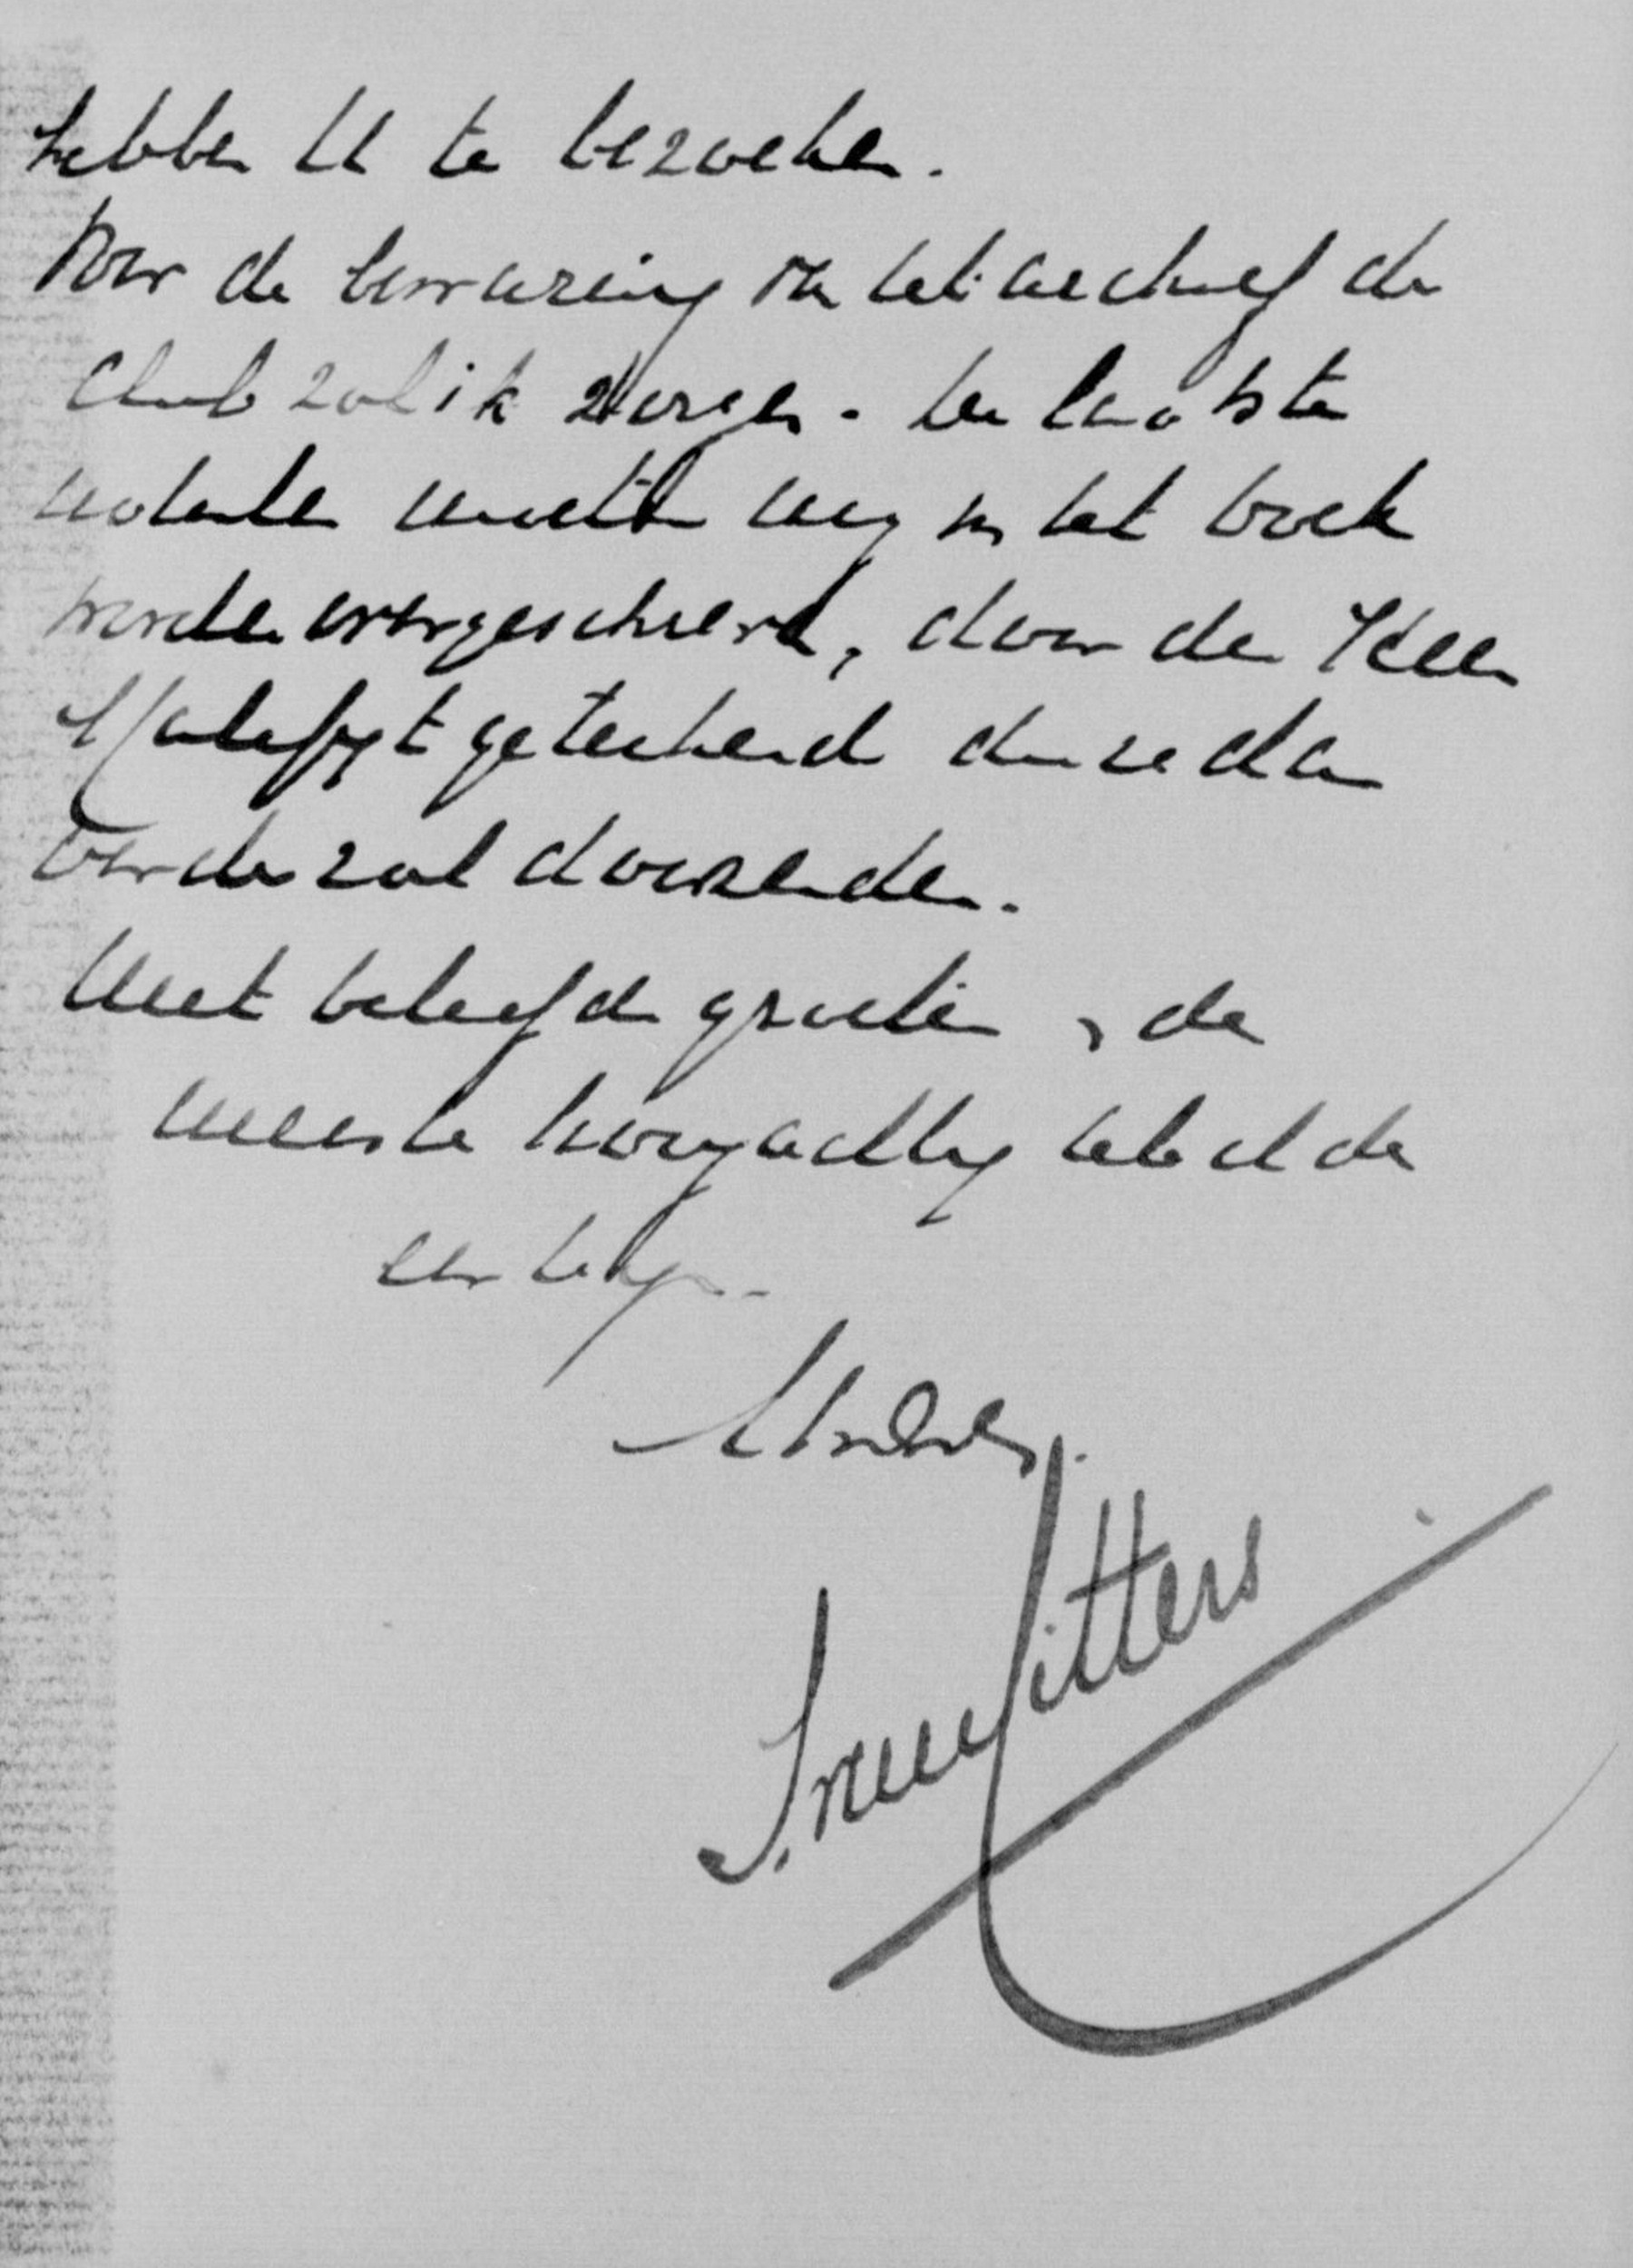 hebben U te bezoeken.
Voor de bewaring van het archief der
Club zal ik zorgen. De laatste
notulen moeten nog in het boek
worden overgeschreven, door den Heer
getekend die ze dan
verder zal doorzenden.
Met beleefde groeten, de
meeste hoogachting hebbende
S. van Sitters